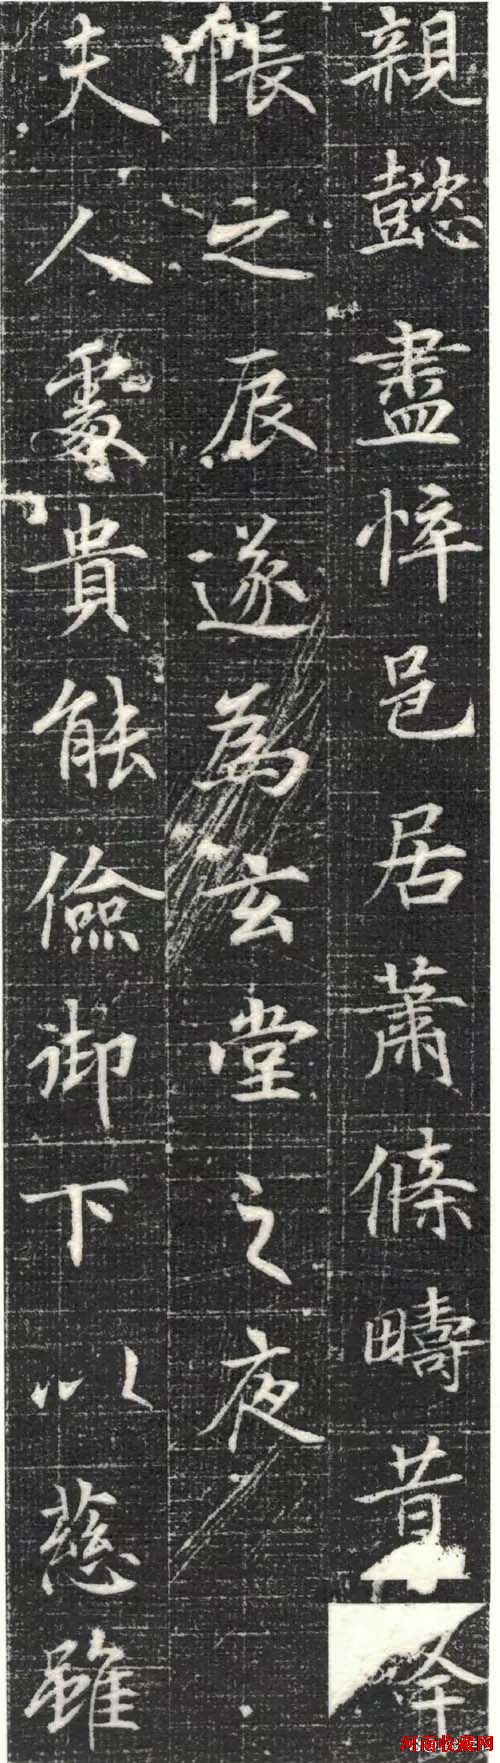 親懿盡悴邑居蕭條疇昔絳
帳之辰遂為玄堂之夜
夫人處貴能儉御下以慈雖
河南收藏网